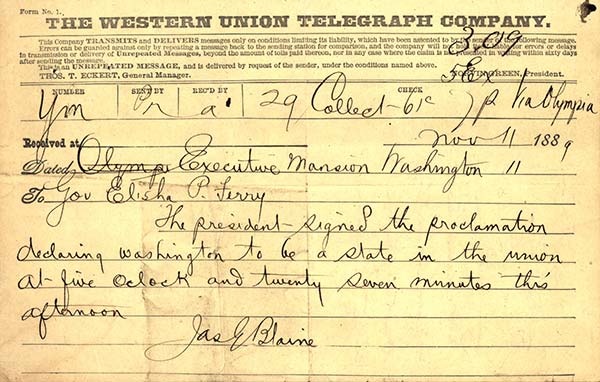 Form No. 1.
THE WESTERN UNION TELEGRAPH COMPANY.
This Company TRANSMITS and DELIVERS messages only on conditions limiting its liability, which have been assented to by the sender of the following message.
Errors can be guarded against only by repeating a message back to the sending station for comparison, and the company will not hold itself liable for errors or delays
in transmission or delivery of Unrepeated Messages, beyond the amount of tolls paid thereon, nor in any case where the claim is not presented in writing within sixty days
after sending the message.
This is an UNREPEATED MESSAGE, and is delivered by request of the sender, under the conditions named above.
THOS. T. ECKERT, General Manager. NORVIN GREEN, President.
NUMBER SENT BY REC'D BY CHECK
Ym Pr a 29 Collect 61c Via Olympia
Received at Nov 11 1889
Dated Executive Mansion Washington 11
To Gov Elisha P. Ferry
The president signed the proclamation
declaring washington to be a state in the union
at five oclock and twenty seven minutes this
afternoon
Jas G Blaine